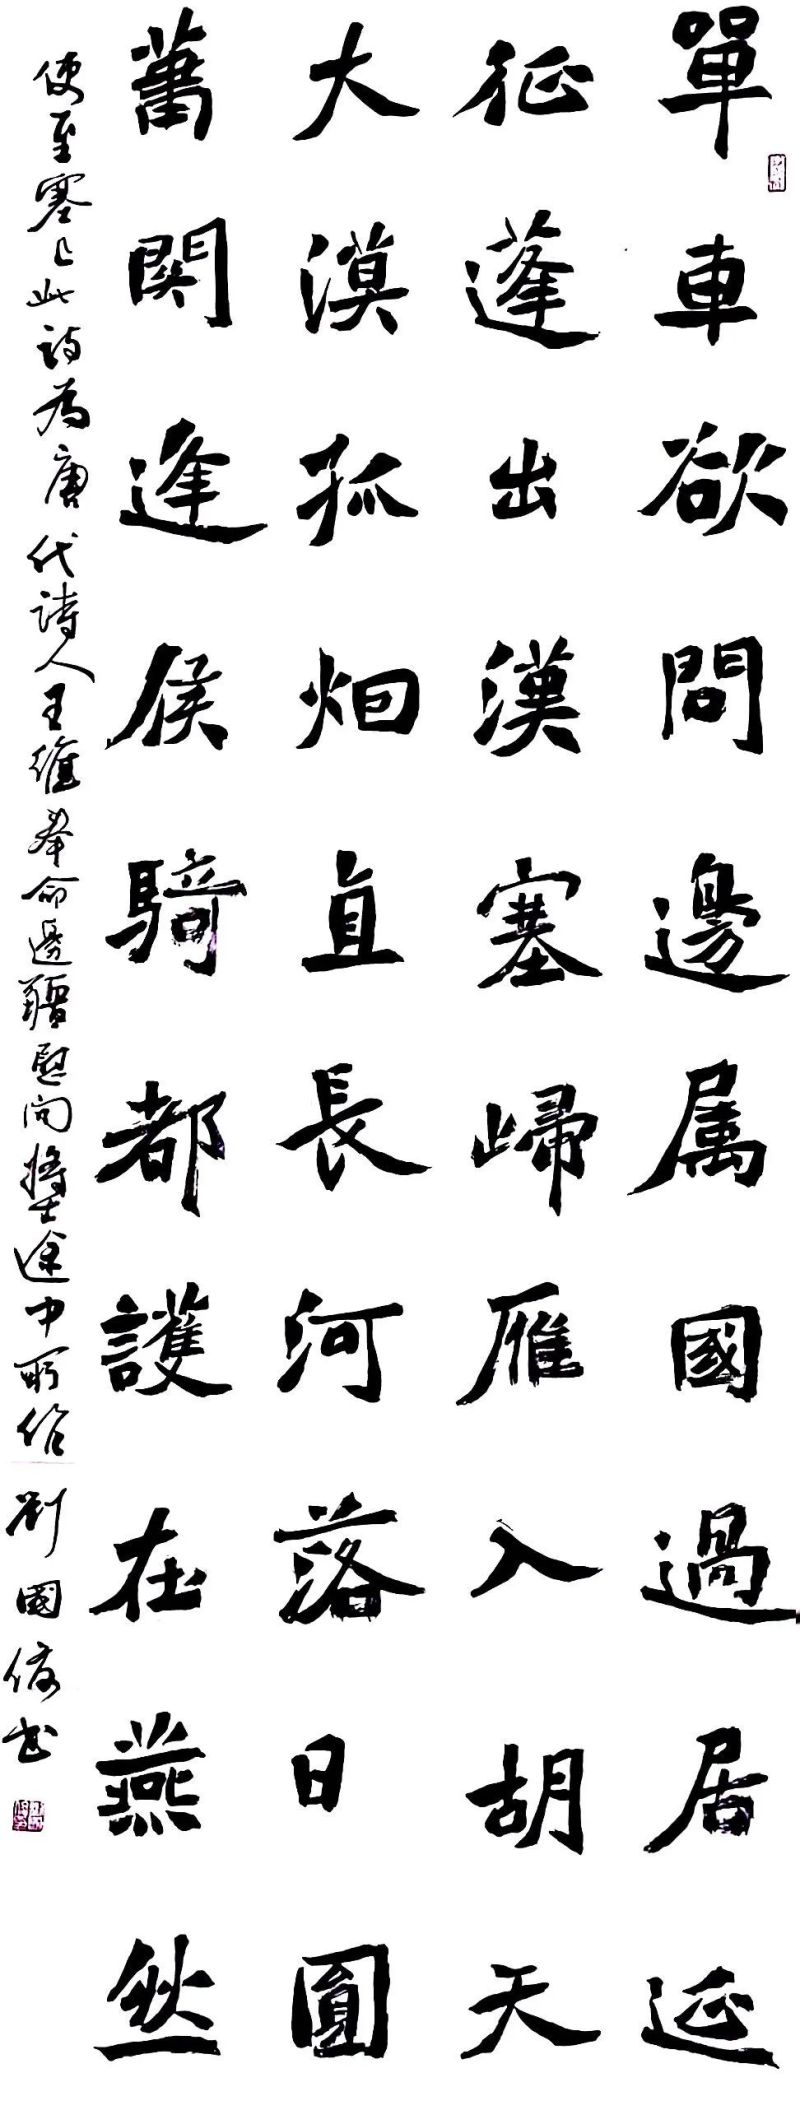 單車欲問邊属國過居延
征蓬出漢塞歸雁入胡天
大漠孤烟直長河落日圓
蕭関逢侯騎都護在燕然
使至塞上此詩為唐代詩人王維奉命邊疆慰问將士途中所作
劉國俊书